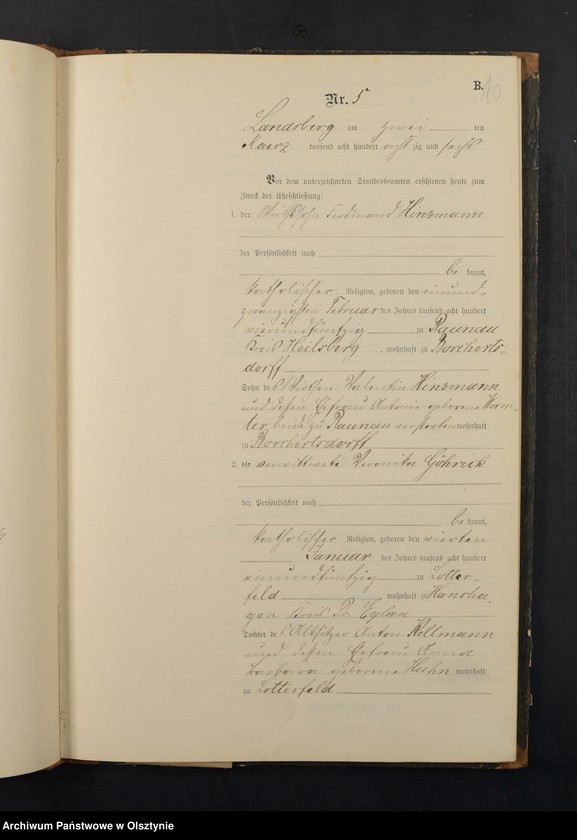 B. 10
Nr. 5
Landsberg am zwei ten
Maerz tausend acht hundert acht zig und sechs
Vor dem unterzeichneten Standesbeamten erschienen heute zum
Zweck der Eheschließung:
1. der Wirthssohn Ferdinand Hinzmann
der Persönlichkeit nach
be kannt,
katholischer Religion, geboren den einund-
zwanzigsten Februar des Jahres tausend acht hundert
vierundfünfzig zu Raunau
Kreis Heilsberg, wohnhaft zu Borcherts-
dorff
Sohn des Wirthen Valentin Hinzmann
und dessen Ehefrau Antonie geborene
beide zu Raunau verstorben wohnhaft
zu Borchertsdorff
2. die verwittwete Veronika Göhrick
der Persönlichkeit nach
be kannt,
katholischer Religion, geboren den vierten
Januar des Jahres tausend acht hundert
einundfünfzig zu Lotter-
feld wohnhaft zu Hansha-
gen Kreis Pr. Eylau
Tochter des Altsitzer Anton Kellmann
und dessen Ehefrau Anna
Barbara geborene Huhn wohnhaft
zu Lotterfeld
Archiwum Państwowe w Olsztynie